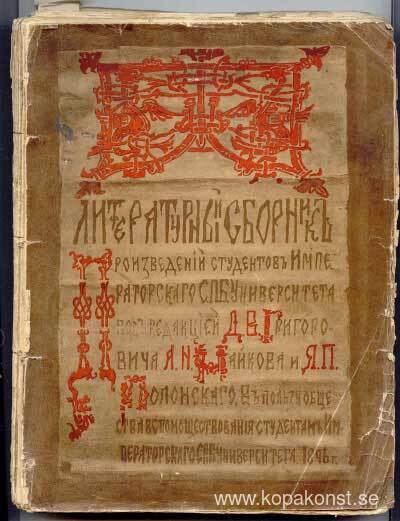 ЛИТЕРАТУРНЫЙ СБОРНИКЪ
ПРОИЗВЕДЕНІЙ СТУДЕНТОВЪ ИМПЕ
РАТОРСКАГО СПБ. УНИВЕРСИТЕТА
ПОДЪ РЕДАКЦІЕЙ Д.В. ГРИГОРО
ВИЧА А.Н. МАЙКОВА И Я.П.
ПОЛОНСКАГО. ВЪ ПОЛЬЗУ ОБЩЕ
СТВА ВСПОМОЩЕСТВОВАНІЯ СТУДЕНТАМЪ ИМ
ПЕРАТОРСКАГО СПБ УНИВЕРСИТЕТА. 1896 г.
www.kopakonst.se